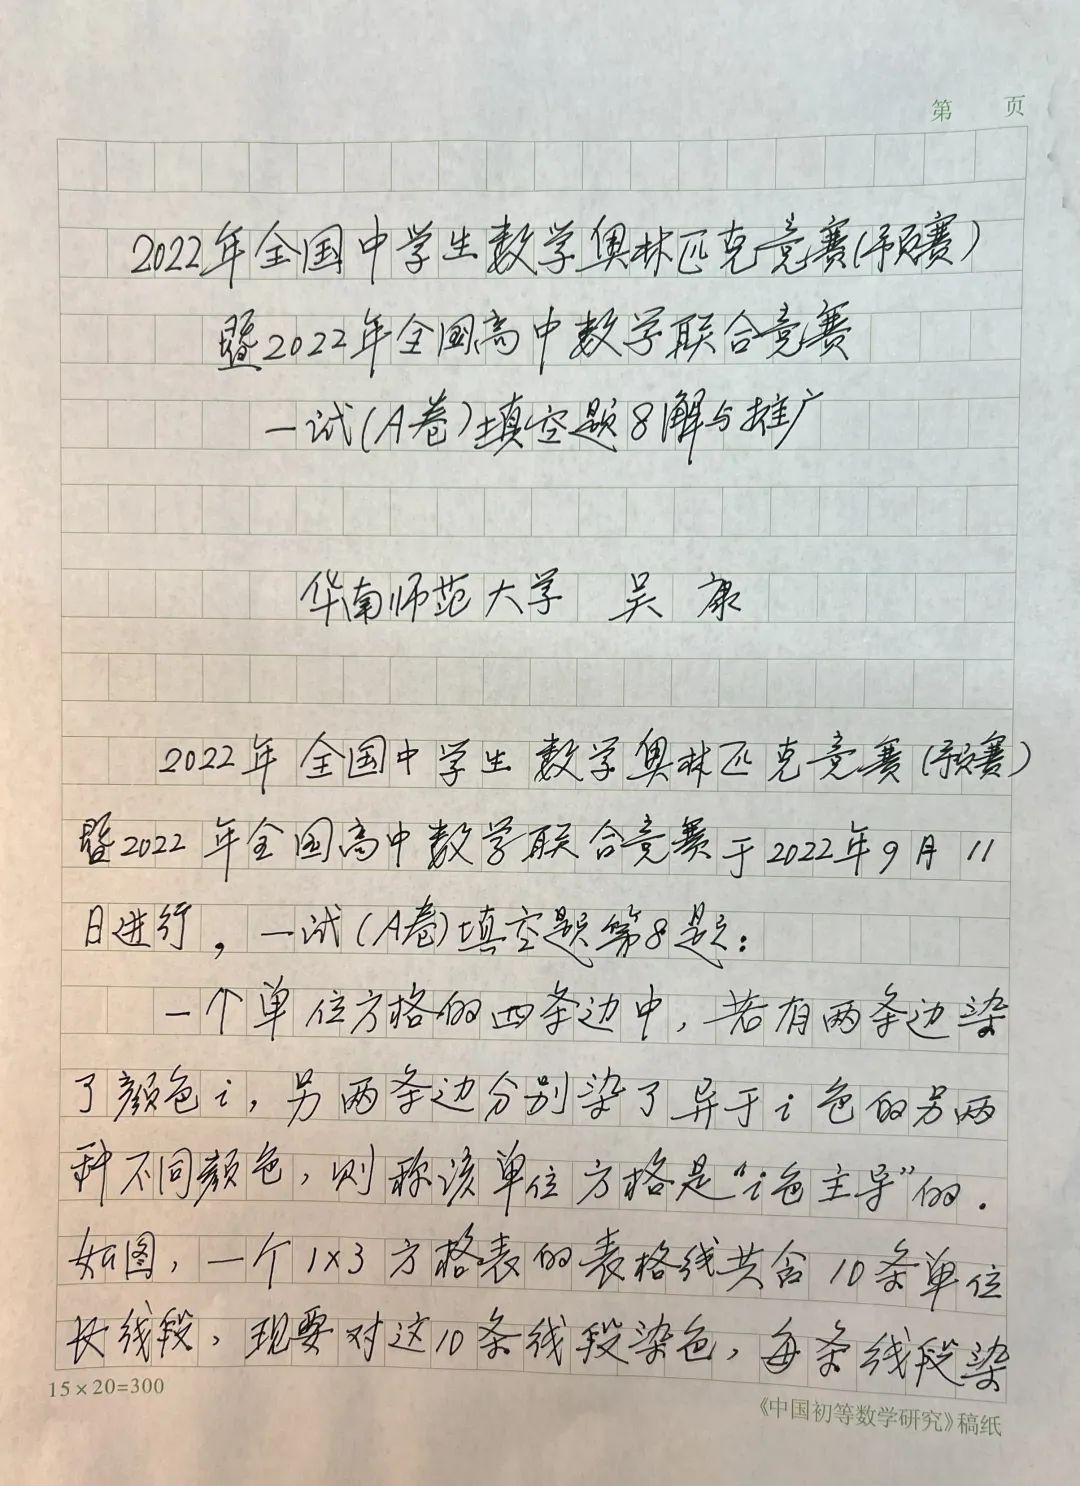 第 页
2022年全国中学生数学奥林匹克竞赛(预赛)
暨2022年全国高中数学联合竞赛
一试(A卷)填空题8解与推广
华南师范大学 吴康
2022年全国中学生数学奥林匹克竞赛(预赛)
暨2022年全国高中数学联合竞赛于2022年9月11
日进行,一试(A卷)填空题第8题:
一个单位方格的四条边中,若有两条边染
了颜色i,另两条边分别染了异于i色的另两
种不同颜色,则称该单位方格是“i色主导”的.
如图,一个1×3方格表的表格线共含10条单位
长线段,现要对这10条线段染色,每条线段染
15×20=300
《中国初等数学研究》稿纸